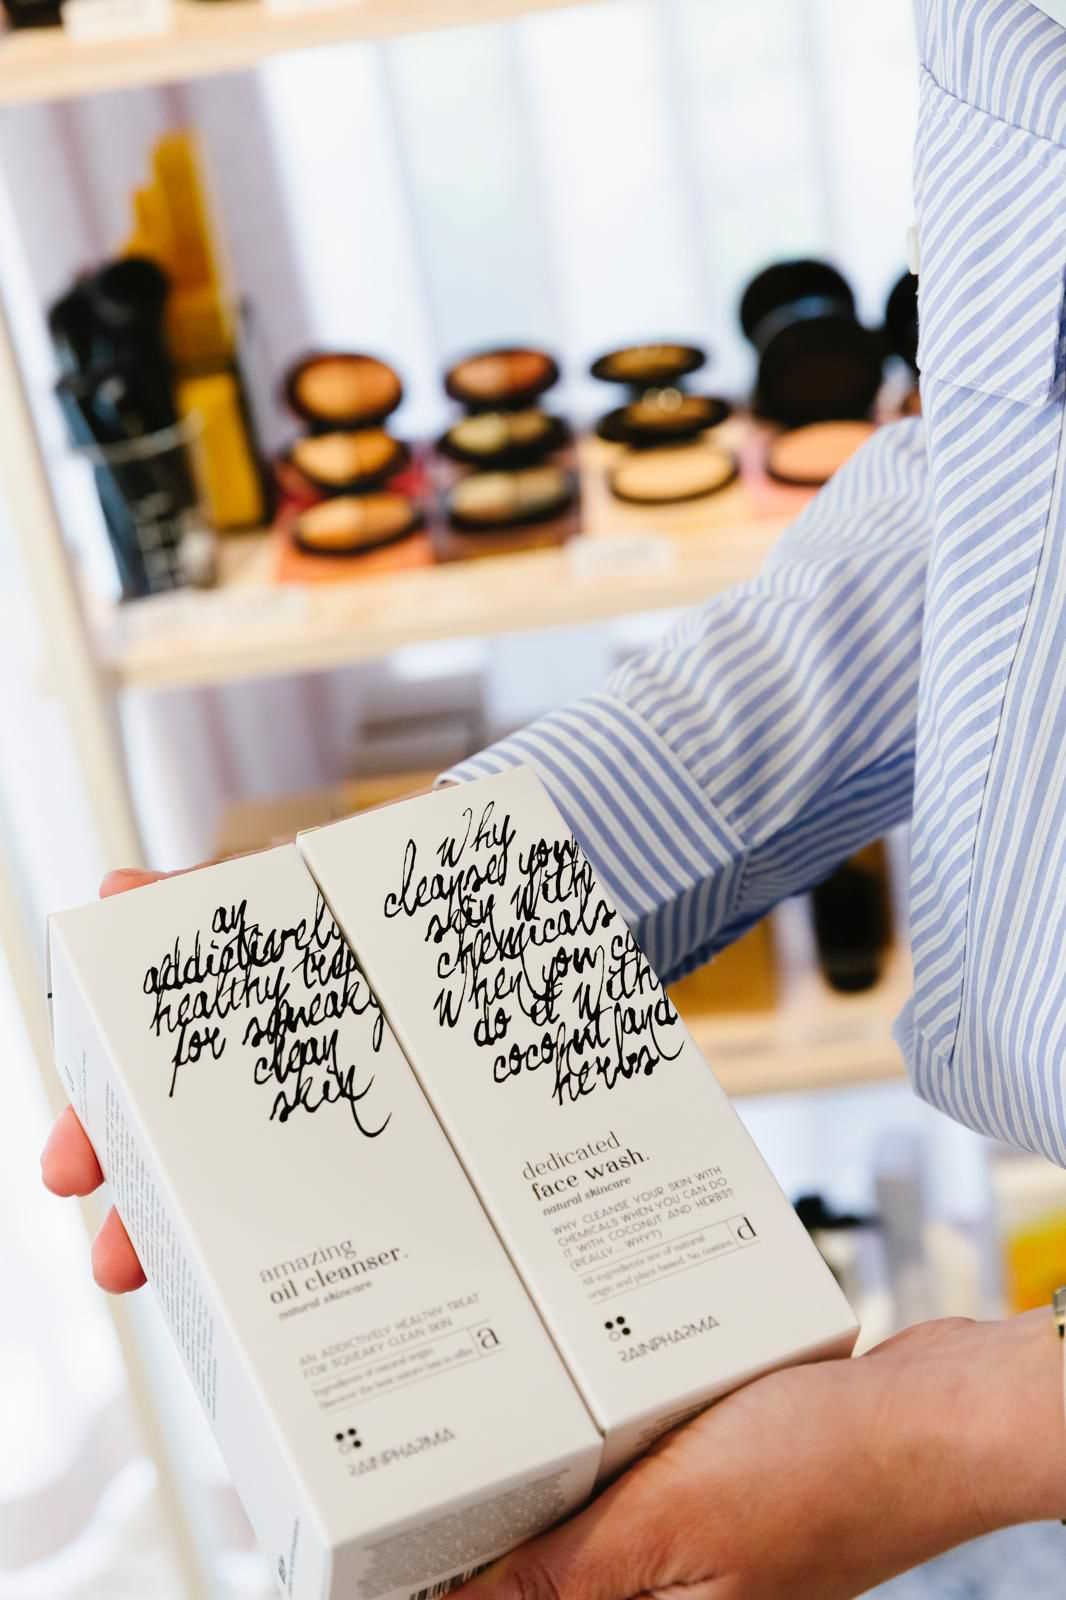 an
addictively
healthy treat
for squeaky
clean
skin
amazing
oil cleanser.
natural skincare
AN ADDICTIVELY HEALTHY TREAT
FOR SQUEAKY CLEAN SKIN
Ingredients of natural origin
a
RAINPHARMA
why
cleanse your
skin with
chemicals
when you can
do it with
coconut and
herbs
dedicated
face wash.
natural skincare
WHY CLEANSE YOUR SKIN WITH
CHEMICALS WHEN YOU CAN DO
IT WITH COCONUT AND HERBS?
(REALLY... WHY?)
All ingredients are of natural
origin and plant based. No
d
RAINPHARMA